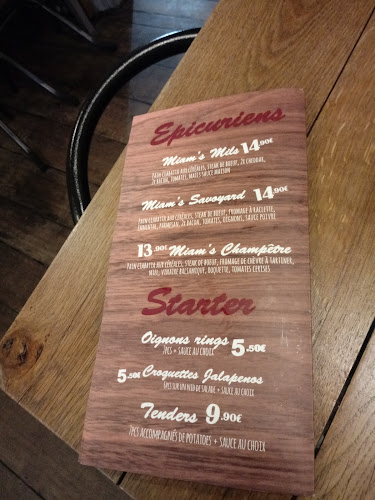 Epicuriens
Miam's Mils 14.90€
PAIN CIABATTA AUX CÉRÉALES, STEAK DE BOEUF, 2X CHEDDAR,
2X BACON, TOMATES, MAÏS SAUCE MAISON
Miam's Savoyard 14.90€
PAIN CIABATTA AUX CÉRÉALES, STEAK DE BOEUF, FROMAGE À RACLETTE,
EMMENTAL, PARMESAN, 2X BACON, TOMATES, OIGNONS, SAUCE POIVRE
13.90€ Miam's Champêtre
PAIN CIABATTA AUX CÉRÉALES, STEAK DE BOEUF, FROMAGE DE CHÈVRE À TARTINER,
MIEL, VINAIGRE BALSAMIQUE, ROQUETTE, TOMATES CERISES
Starter
Oignons rings 5.50€
7PCS + SAUCE AU CHOIX
5.50€ Croquettes Jalapenos
5PCS SUR UN NID DE SALADE + SAUCE AU CHOIX
Tenders 9.90€
7PCS ACCOMPAGNÉS DE POTATOES + SAUCE AU CHOIX